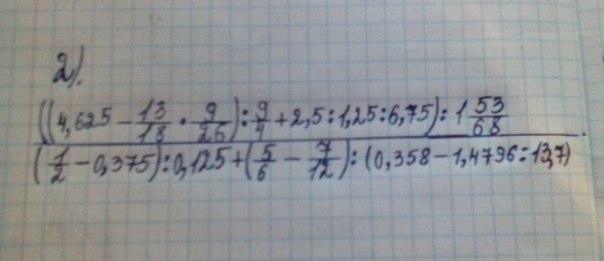 2).
((4,625 - 13/18 · 9/26) : 9/4 + 2,5 : 1,25 : 6,75) : 1 53/68
(1/2 - 0,375) : 0,125 + (5/6 - 7/12) : (0,358 - 1,4796 : 13,7)